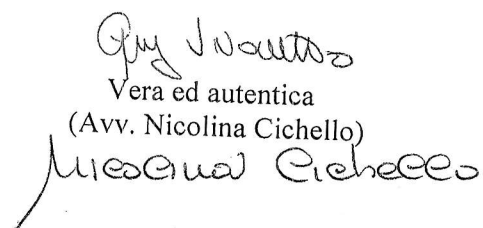 Vera ed autentica
(Avv. Nicolina Cichello)
Nicolina Cichello